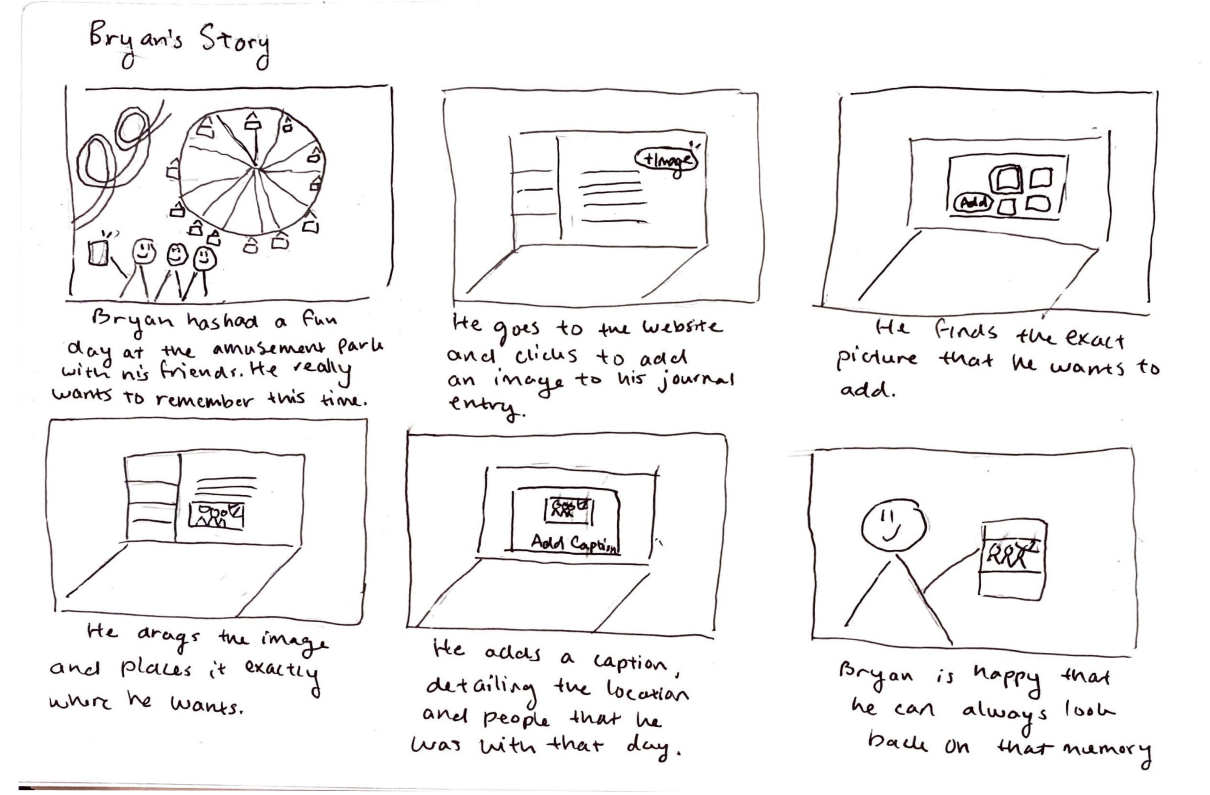 Bryan's Story
+Image
Add
Bryan has had a fun
day at the amusement park
with his friends. He really
wants to remember this time.
He goes to the website
and clicks to add
an image to his journal
entry.
He finds the exact
picture that he wants to
add.
Add Caption
He drags the image
and places it exactly
where he wants.
He adds a caption,
detailing the location
and people that he
was with that day.
Bryan is happy that
he can always look
back on that memory